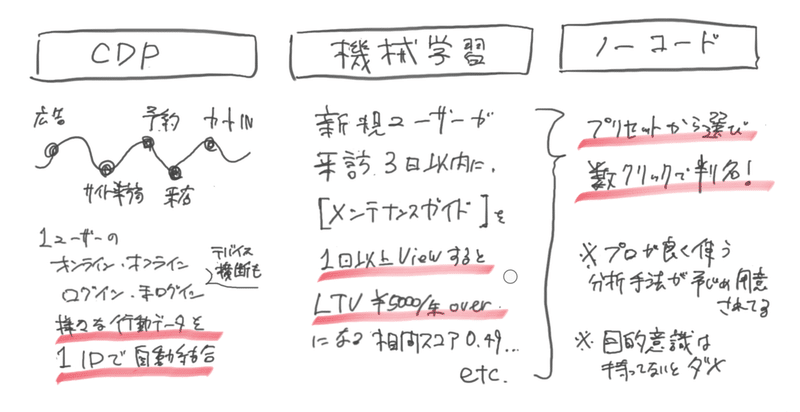 CDP
広告
予約
カートIN
サイト来訪
来店
1ユーザーの
オンライン・オフライン
ログイン・未ログイン
デバイス
横断も
様々な行動データを
1IDで自動結合
機械学習
新規ユーザーが
来訪3日以内に、
[メンテナンスガイド]を
1回以上Viewすると
LTV ¥5000/年over
になる相関スコア0.49...
etc.
ノーコード
プリセットから選び
数クリックで判名!
※プロが良く使う
分析手法が予じめ用意
されてる
※目的意識は
持ってないとダメ